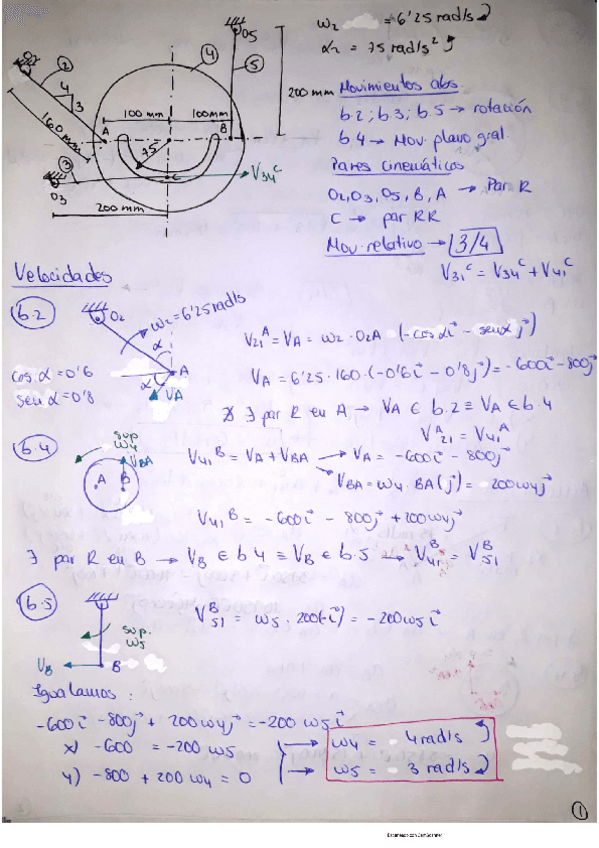 ω₂ = 6'25 rad/s
α₂ = 75 rad/s²
O₂
2
4
3
160 mm
100 mm
100 mm
A
B
75
C
3
O₃
200 mm
V₃₄ᶜ
4
5
O₅
200 mm
Movimientos abs
b.2 ; b.3 ; b.5 → rotación
b.4 → Mov. plano gral.
Pares cinemáticos
O₂, O₃, O₅, B, A → Par R
C → par RR
Mov. relativo → 3/4
V₃₁ᶜ = V₃₄ᶜ + V₄₁ᶜ
Velocidades
b.2
O₂
ω₂ = 6'25 rad/s
α
A
α
VA
cos α = 0'6
sen α = 0'8
V₂₁ᴬ = VA = ω₂ · O₂A (-cos α i - sen α j)
VA = 6'25 · 160 · (-0'6 i - 0'8 j) = -600 i - 800 j
∃ par R en A → VA ∈ b.2 ≡ VA ∈ b.4
Vᴬ₂₁ = V₄₁ᴬ
b.4
sup
ω₄
VBA
A B
V₄₁ᴮ = VA + VBA → VA = -600 i - 800 j
VBA = ω₄ · BA (j) = 200 ω₄ j
V₄₁ᴮ = -600 i - 800 j + 200 ω₄ j
∃ par R en B → VB ∈ b.4 ≡ VB ∈ b.5 → V₄₁ᴮ = V₅₁ᴮ
b.5
sup.
ω₅
VB
B
V₅₁ᴮ = ω₅ · 200 (-i) = -200 ω₅ i
Igualamos :
-600 i - 800 j + 200 ω₄ j = -200 ω₅ i
x) -600 = -200 ω₅
y) -800 + 200 ω₄ = 0
ω₄ = 4 rad/s
ω₅ = 3 rad/s
1